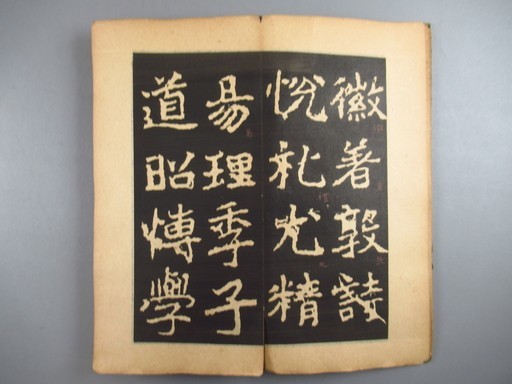 徽著敦詩
悅礼尤精
易理季子
道昭愽學